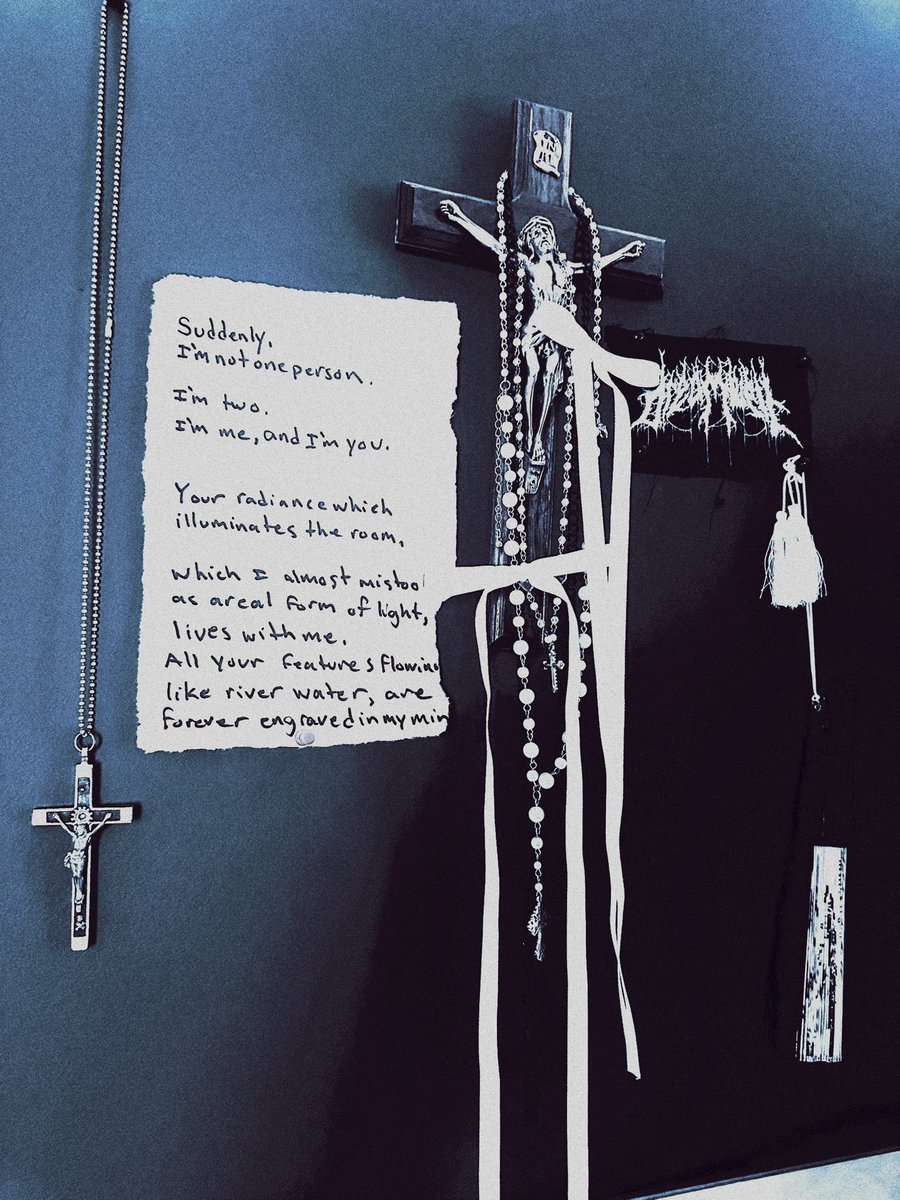 Suddenly.
I'm not one person.
I'm two.
I'm me, and I'm you.
Your radiance which
illuminates the room,
which I almost mistoo
as a real form of light,
lives with me.
All your features flowing
like river water, are
forever engraved in my min